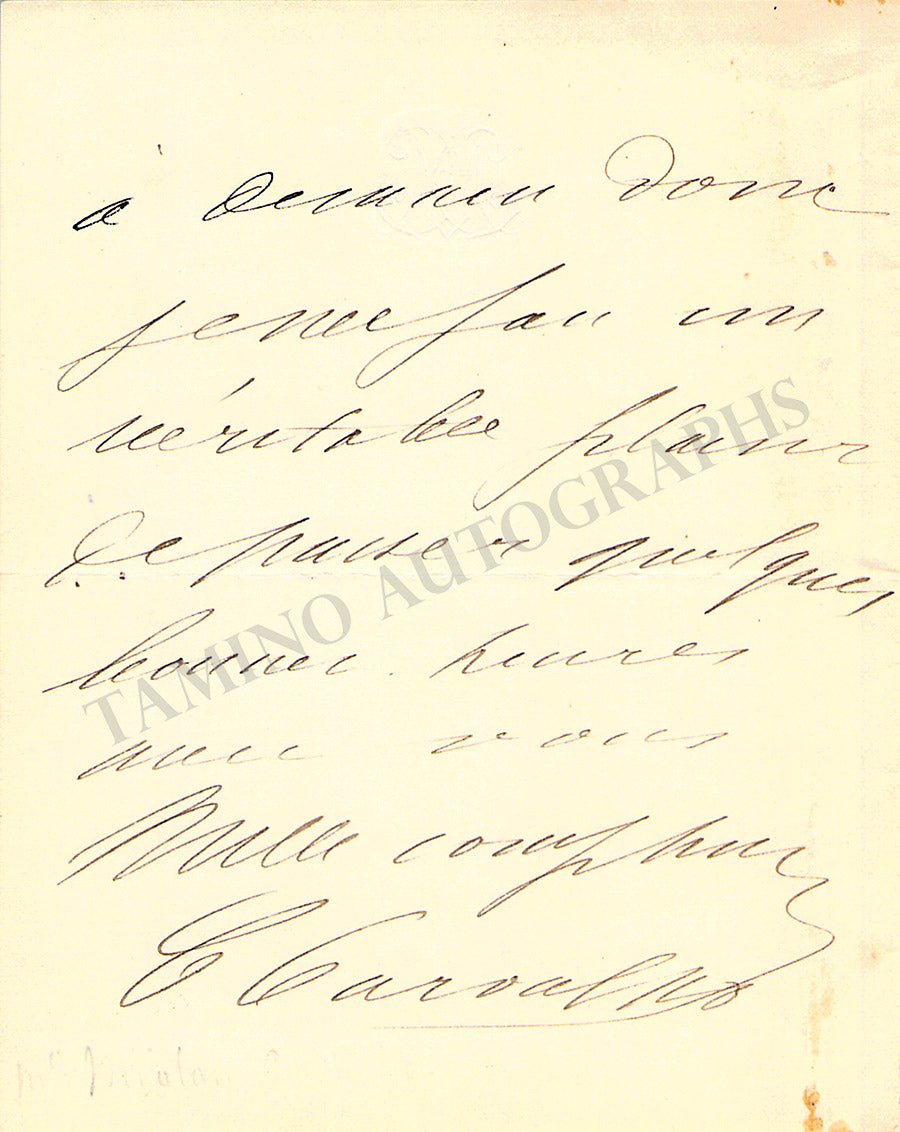 à demain donc
je me fais un
véritable plaisir
de passer quelques
bonnes heures
avec vous
Mille compliments
C Carvalho
TAMINO AUTOGRAPHS